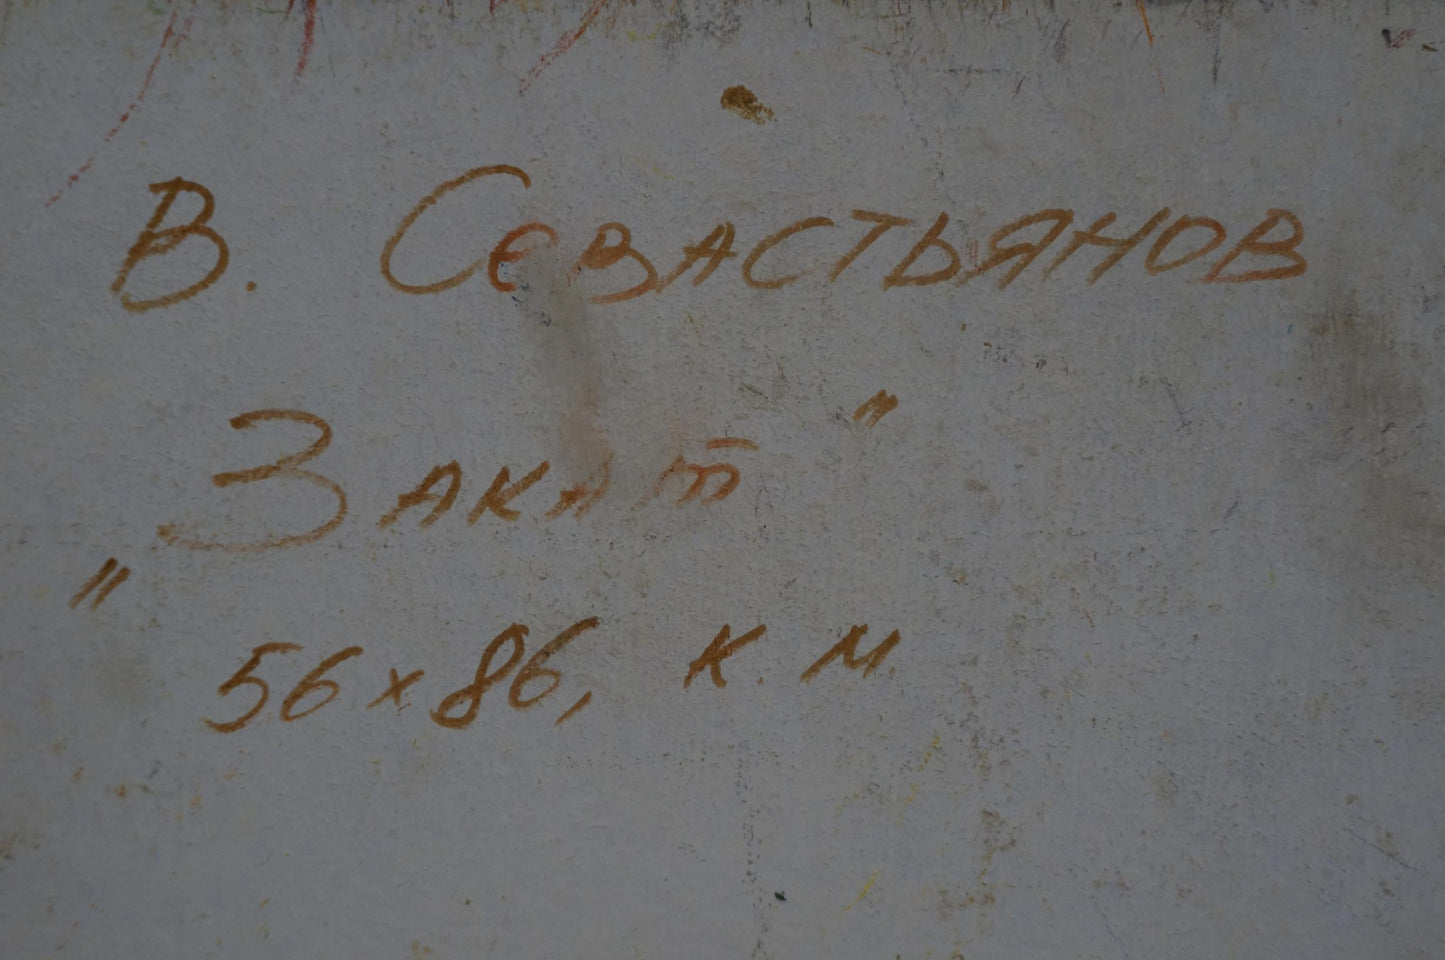 В. Севастьянов
"Закат"
56х86, к. м.